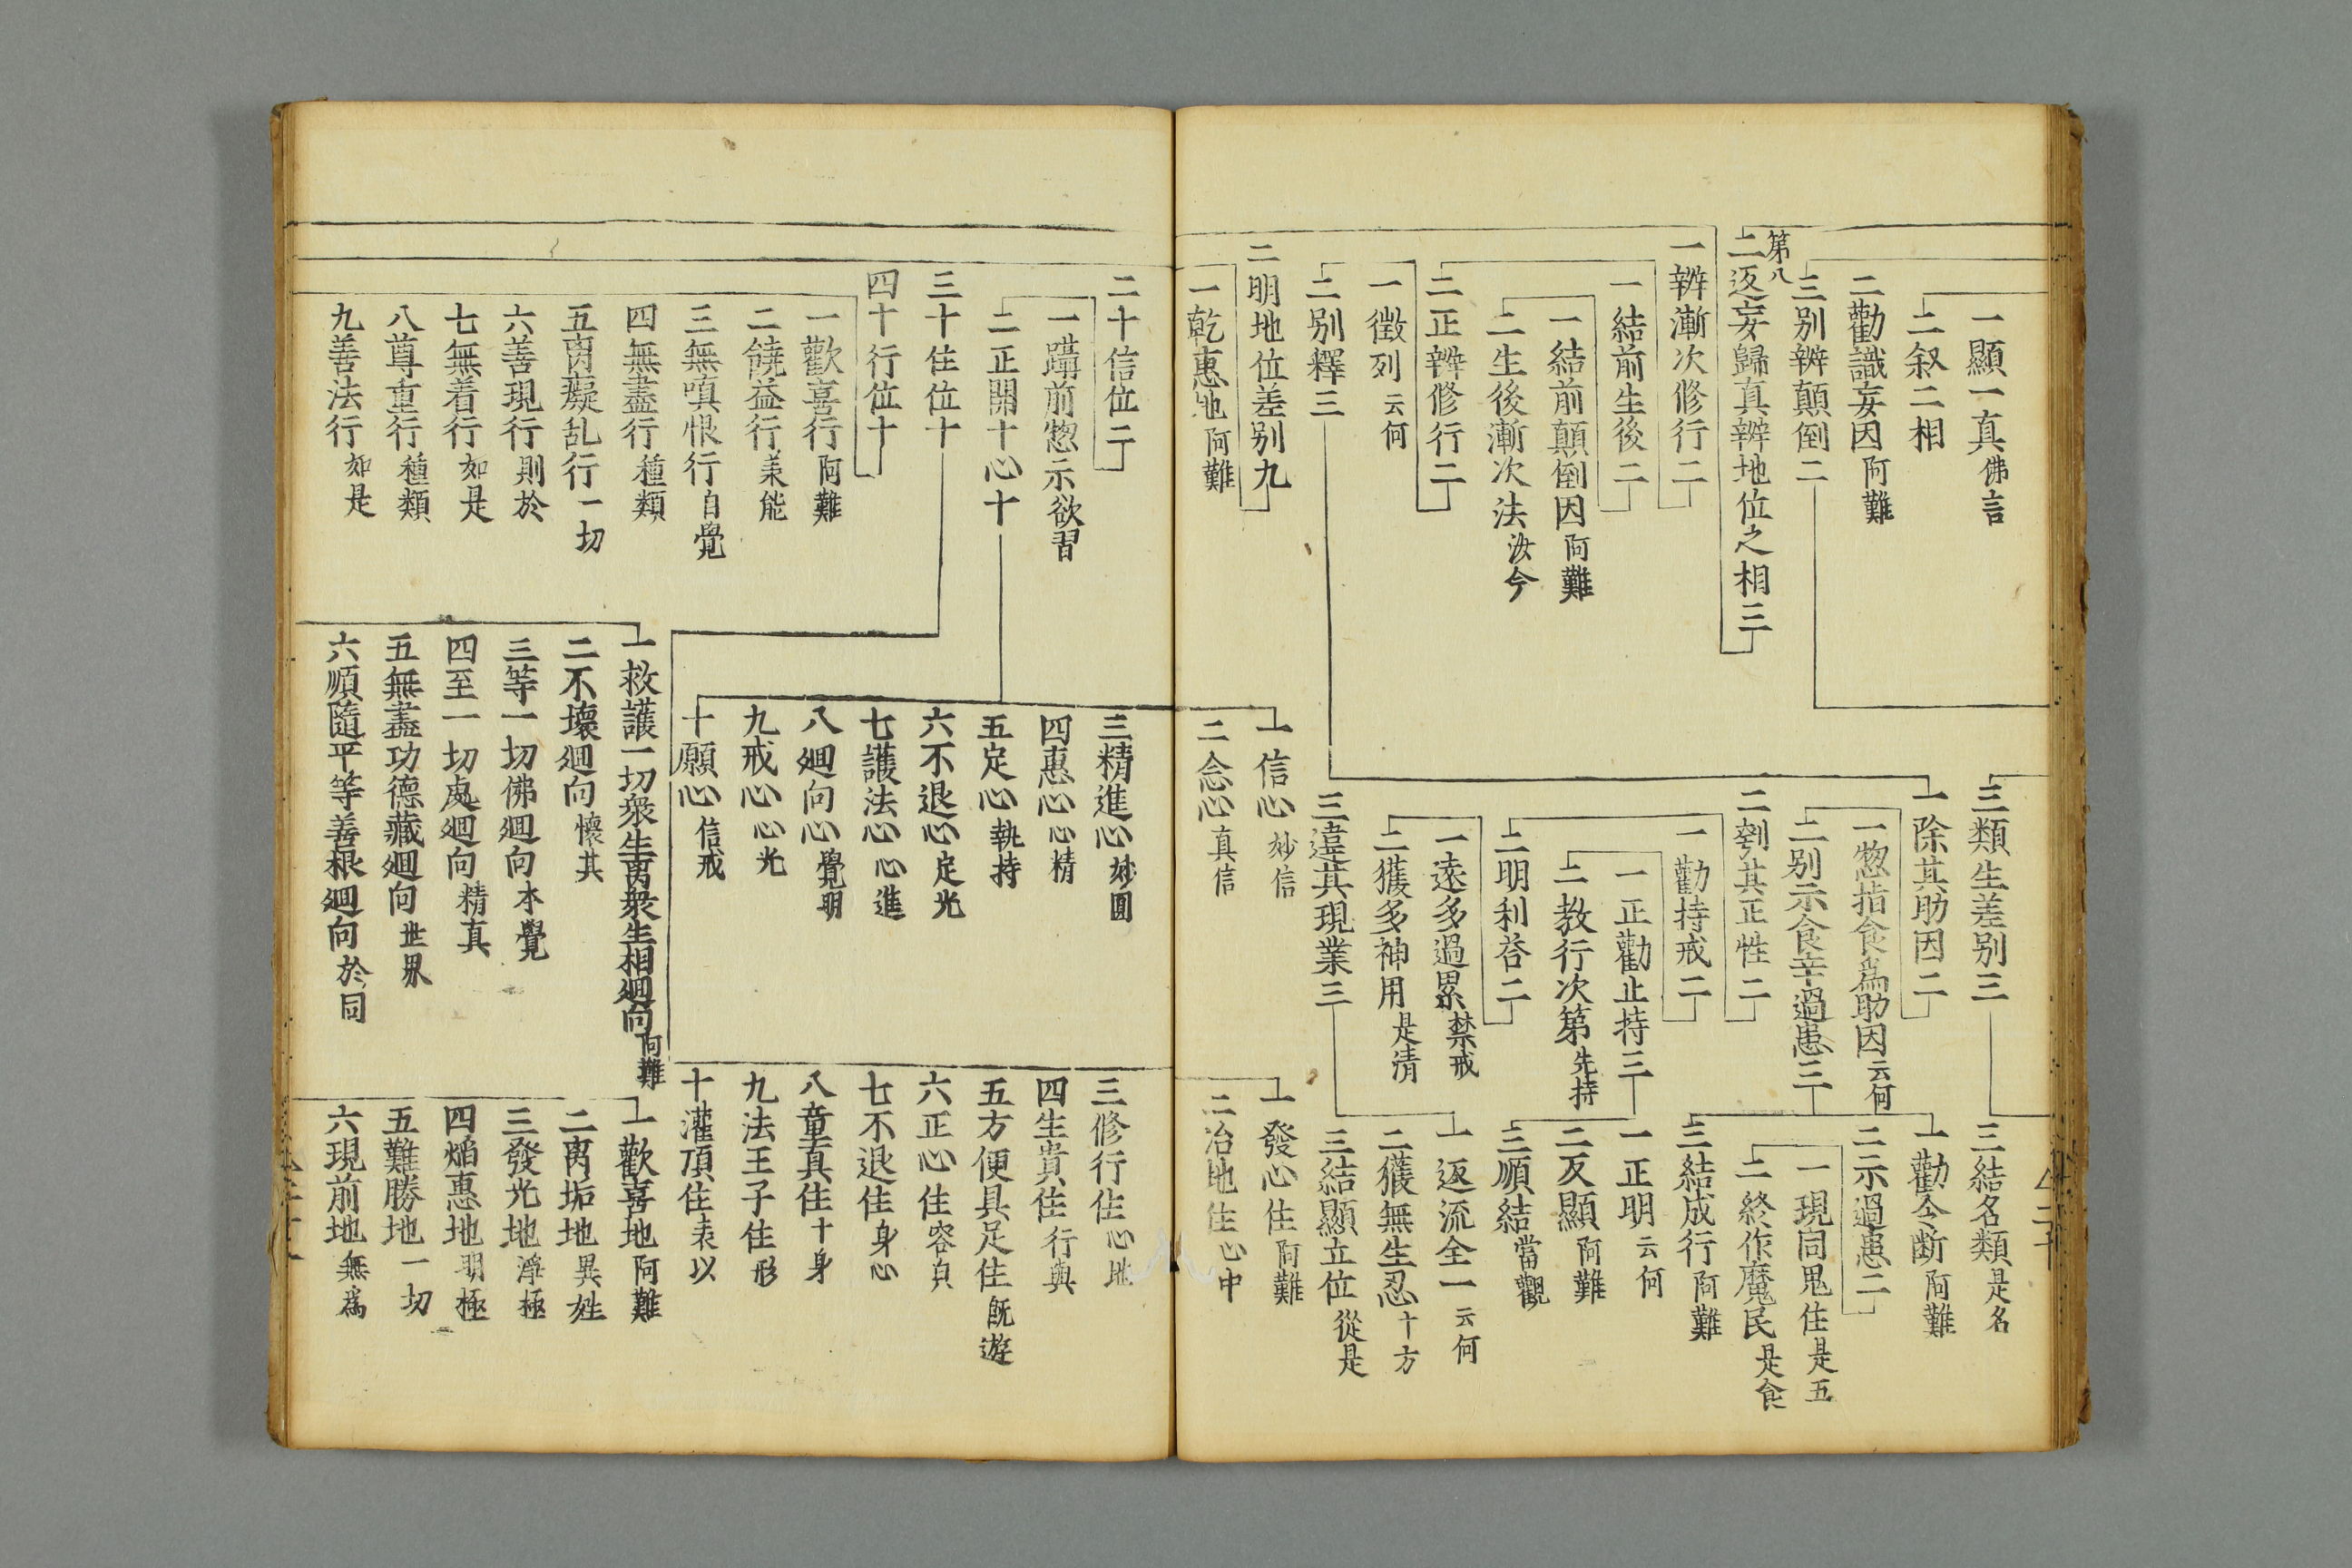 一顯一真佛言
二叙二相
二勸識妄因阿難
三别辨顛倒二
第八
二返妄歸真辨地位之相三
一辨漸次修行二
一結前生後二
一結前顛倒因阿難
二生後漸次法汝今
二正辨修行二
一徴列云何
二别釋三
二明地位差别九
一乾惠地阿難
三類生差别三
一除其助因二
一惣指食爲助因云何
二别示食辛過患三
二刳其正性二
一勸持戒二
一正勸止持三
二教行次第先持
二明利荅二
一遠多過累禁戒
二獲多神用是清
三違其現業三
一信心妙信
二念心真信
三結名類是名
一勸令断阿難
二示過患二
一現同鬼住是五
二終作魔民是食
三結成行阿難
一正明云何
二反顯阿難
三順結當觀
一返流全一云何
二獲無生忍十方
三結顯立位從是
一發心住阿難
二治地住心中
二十信位二
一躡前惣示欲習
二正開十心十
三十住位十
四十行位十
一歡喜行阿難
二饒益行美能
三無嗔恨行自覺
四無盡行種類
五离癡乱行一切
六善現行則於
七無着行如是
八尊重行種類
九善法行如是
三精進心妙圓
四惠心心精
五定心執持
六不退心定光
七護法心心進
八廻向心覺明
九戒心心光
十願心信戒
一救護一切衆生离衆生相廻向阿難
二不壞廻向懷其
三等一切佛廻向本覺
四至一切處廻向精真
五無盡功德藏廻向世界
六順隨平等善根廻向於同
三修行住心地
四生貴住行與
五方便具足住既遊
六正心住容皃
七不退住身心
八童真住十身
九法王子住形
十灌頂住表以
一歡喜地阿難
二离垢地異姓
三發光地淨極
四焔惠地明極
五難勝地一切
六現前地無爲